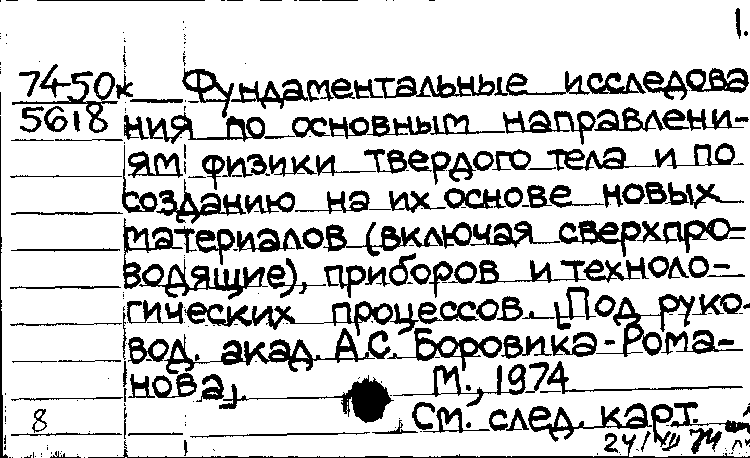 1.
74-50к Фундаментальные исследова
5618 ния по основным направлени-
ям физики твердого тела и по
созданию на их основе новых
материалов (включая сверхпро-
водящие), приборов и техноло-
гических процессов. [Под руко-
вод. акад. А.С. Боровика-Рома-
нова]. М., 1974
8 См. след. карт.
24/XII 74